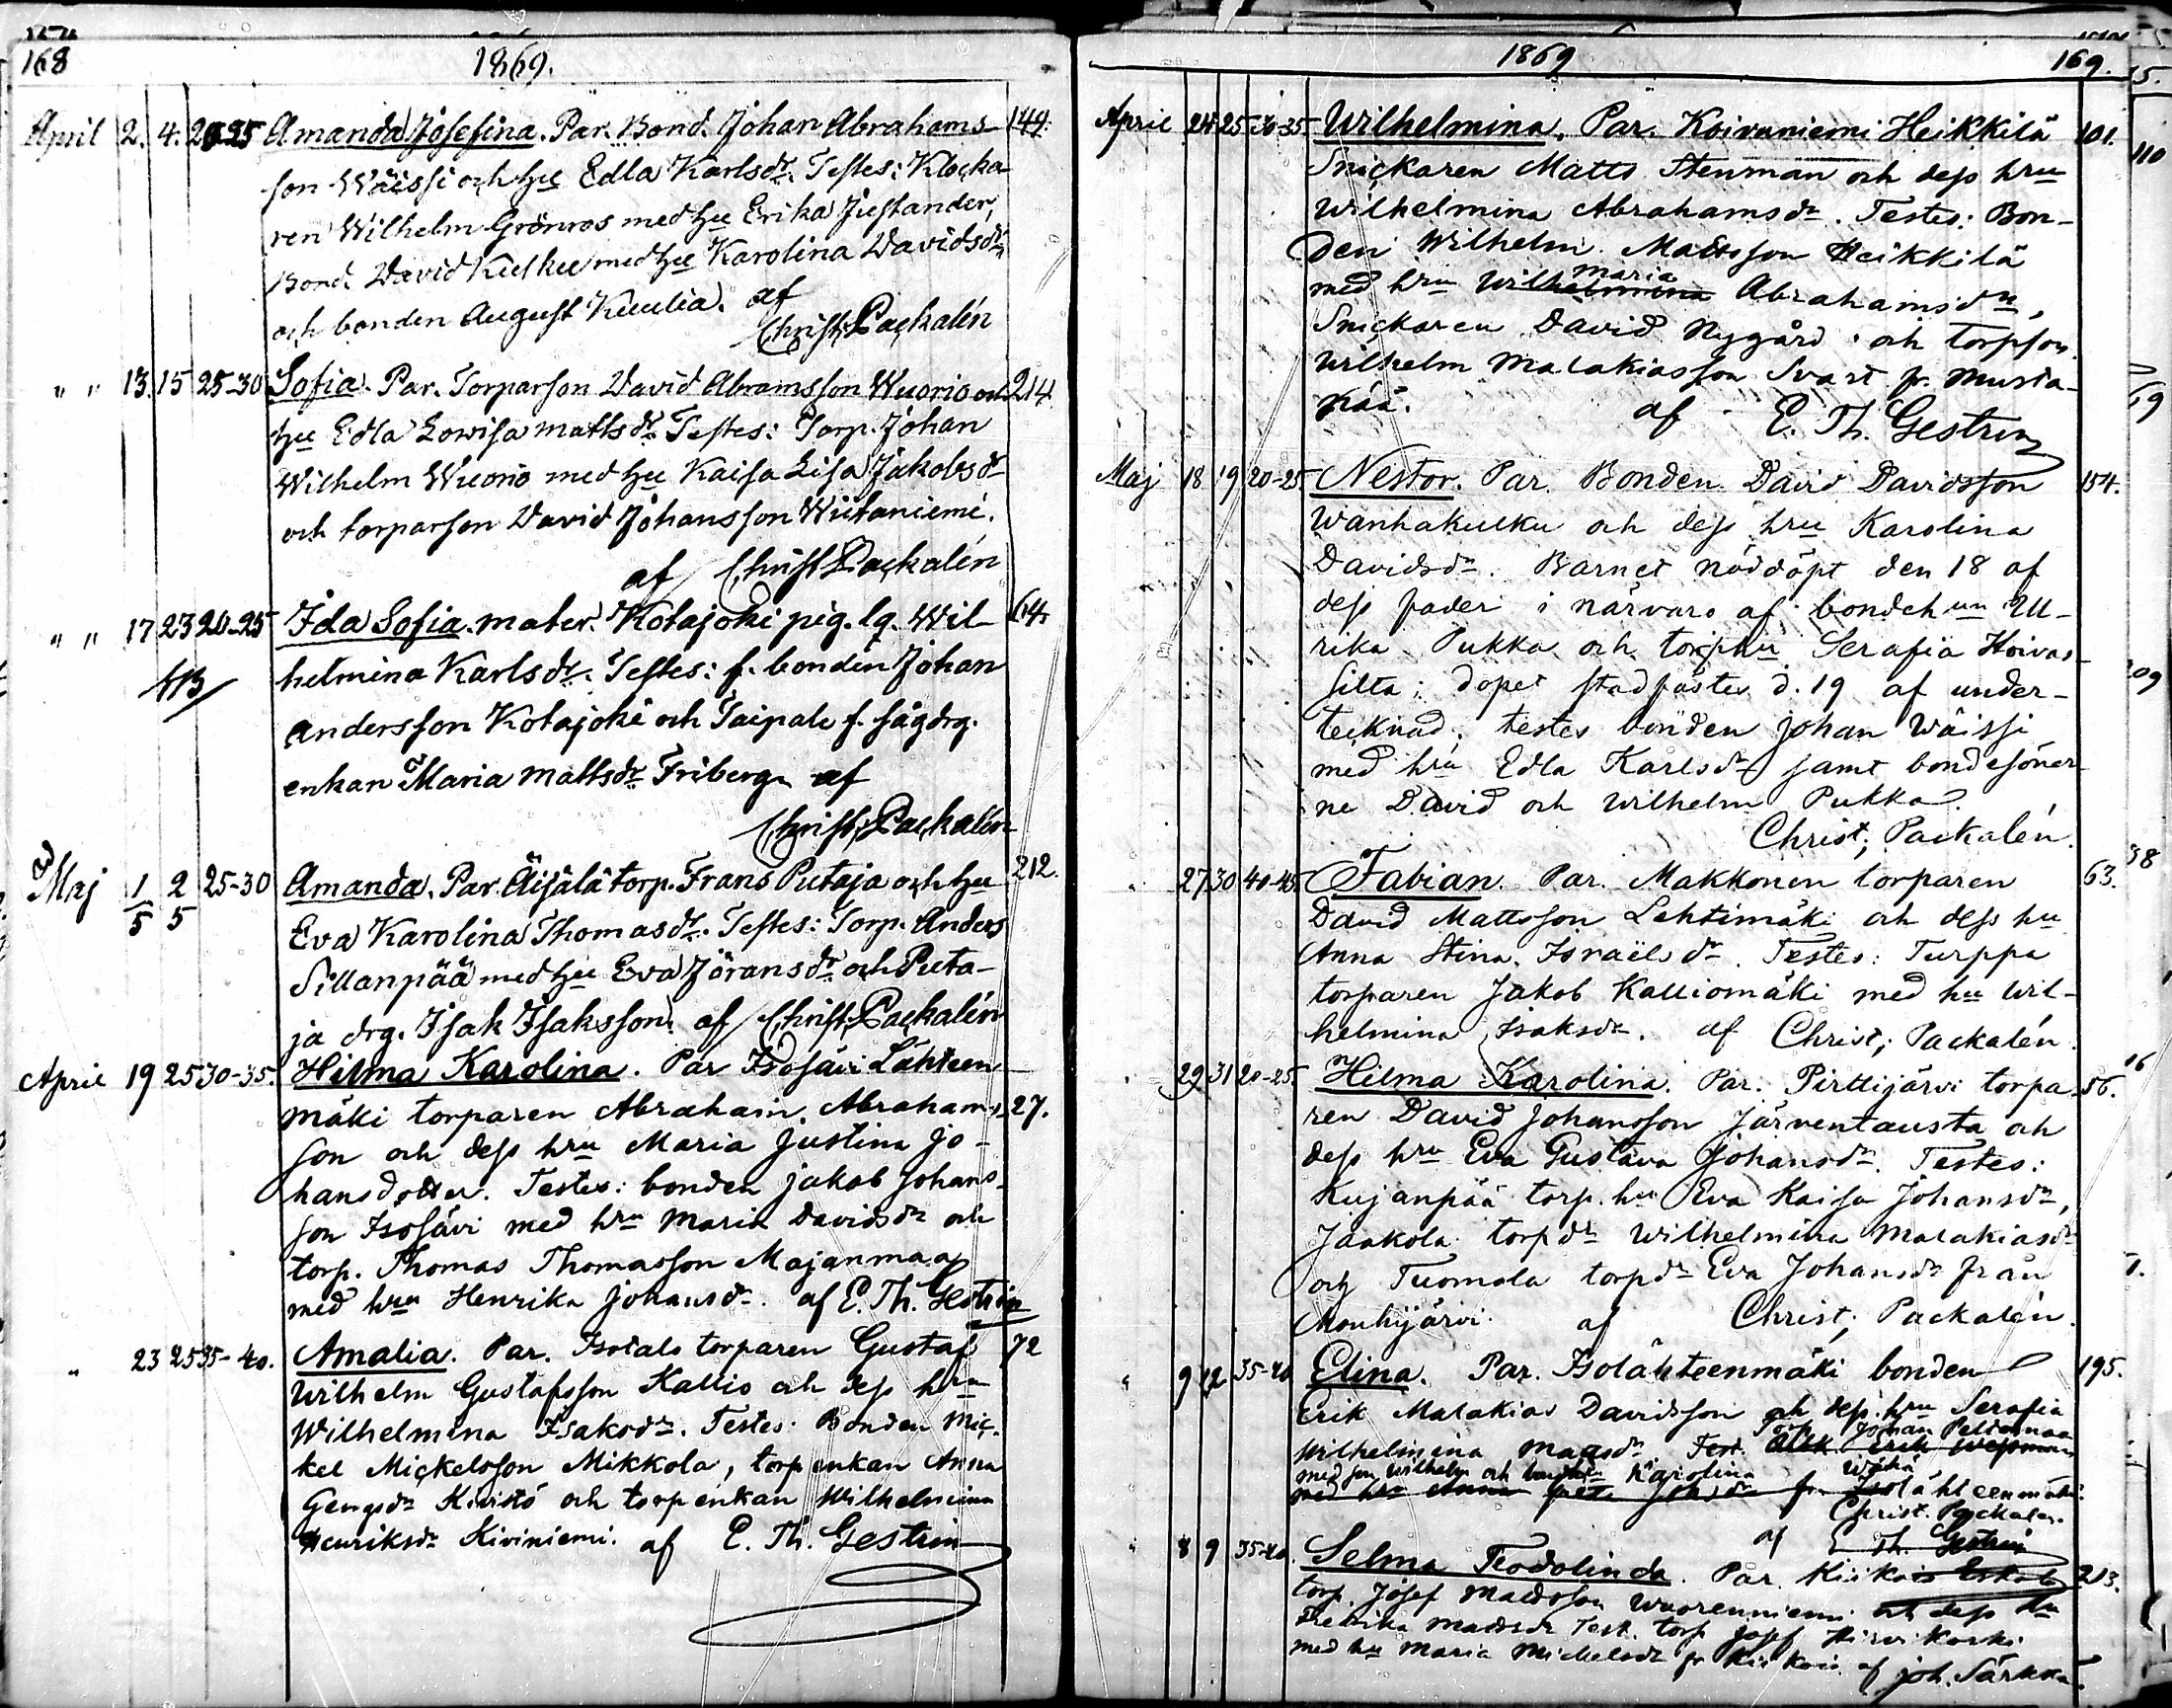 168 1869.
April 2. 4. 20-25 Amanda Josefina. Par. Bond. Johan Abrahams- 144.
son Wäissi och hu Edla Karlsdr. Testes: Klocka-
ren Wilhelm Grönros med hu Erika Justander,
Bond. David Kulku med hu Karolina Davidsdr
och bonden August Kuulia. af
Christ; Packalén
" " 13. 15 25-30 Sofia. Par. Torparson David Abramsson Wuorio och 214.
hu Edla Lowisa Mattsdr. Testes: Torp. Johan
Wilhelm Wuorio med hu Kaisa Lisa Jakobsdr
och torparson David Johansson Wiitaniemi.
af Christ; Packalén
" " 17 23 20-25 Ida Sofia. mater. Kotajoki pig. lg. Wil- 64.
helmina Karlsdr. Testes: f. bonden Johan
Andersson Kotajoki och Taipale f. sågdrg.
enkan Maria Mattsdr Friberg af
Christ; Packalén
Maj 1/5 2/5 25-30 Amanda. Par. Äijälä torp. Frans Putaja och hu 212.
Eva Karolina Thomasdr. Testes: Torp. Anders
Sillanpää med hu Eva Jöransdr och Puta-
ja drg. Isak Isaksson. af Christ; Packalén
April 19 25 30-35. Hilma Karolina. Par Isosävi Lähteen-
mäki torparen Abraham Abrahams- 27.
son och dess hru Maria Justina Jo-
hansdotter. Testes: bonden Jakob Johans-
son Isosävi med hru Maria Davidsdr och
torp. Thomas Thomasson Majanmaa
med hru Henrika Johansdr. af E. Th. Gestrin
" 23 25 35-40. Amalia. Par. Isotalo torparen Gustaf 72
Wilhelm Gustafsson Kallio och dess hru
Wilhelmina Isaksdr. Testes: Bonden Mic-
kel Mickelsson Mikkola, torpenkan Anna
Kivistö och torpenkan Wilhelmina
Henriksdr Kiviniemi. af E. Th. Gestrin
1869 169.
April 24 25 30-35. Wilhelmina. Par. Koivuniemi Heikkilä 101.
Snickaren Matts Stenman och dess hru
Wilhelmina Abrahamsdr. Testes: Bon-
den Wilhelm Mattsson Heikkilä
maria
med hru Wilhelmina Abrahamsdr,
Snickaren David Nygård och torpson
Wilhelm Malakiasson Svart fr. Musta-
pää. af E. Th. Gestrin
Maj 18 19 20-25 Nestor. Par. Bonden David Davidsson 154.
Wanhakulku och dess hru Karolina
Davidsdr. Barnet nöddöpt den 18 af
dess fader i närvaro af bondehun Ul-
rika Pukka och torphu Serafia Hoivas-
silta; dopet stadfästes d. 19 af under-
tecknad; testes bonden Johan Wäissi
med hru Edla Karlsdr samt bondesöner-
ne David och Wilhelm Pukka.
Christ; Packalén.
" 27 30 40-45. Fabian. Par. Makkonen torparen 63.
David Mattsson Lehtimäki och dess hu
Anna Stina Israëlsdr. Testes: Turppa
torparen Jakob Kalliomäki med hu Wil-
helmina Isaksdr. af Christ; Packalén.
" 29 31 20-25. Hilma Karolina. Par. Pirttijärvi torpa- 56.
ren David Johansson Järventausta och
dess hru Eva Gustava Johansdr. Testes:
Kujanpää torp. hu Eva Kaisa Johansdr,
Jaakola torpdr Wilhelmina Malakiasdr
och Tuomola torpdr Eva Johansdr från
Mouhijärvi. af Christ; Packalén.
" 9 12 35-40 Elina. Par. Isolähteenmäki bonden 195.
Erik Malakias Davidsson och dess hru Serafia
torp. Johan Peltomaa
Wilhelmina Matsdr. Test. Erik
med son Wilhelm och Karolina Wähä
med hru Anna fr. Isolähteenmäki.
Christ. Packalen.
af E. Th. Gestrin
" 8 9 35-40. Selma Teodolinda. Par. Kiikois 213.
torp. Josef Mattsson Wuorenniemi och dess hu
Fredrika Mattsdr Test. torp Josef Hirvikoski
med hu Maria Michelsdr fr Kiikois af Joh. Särkkä.
110
69
109
38
16